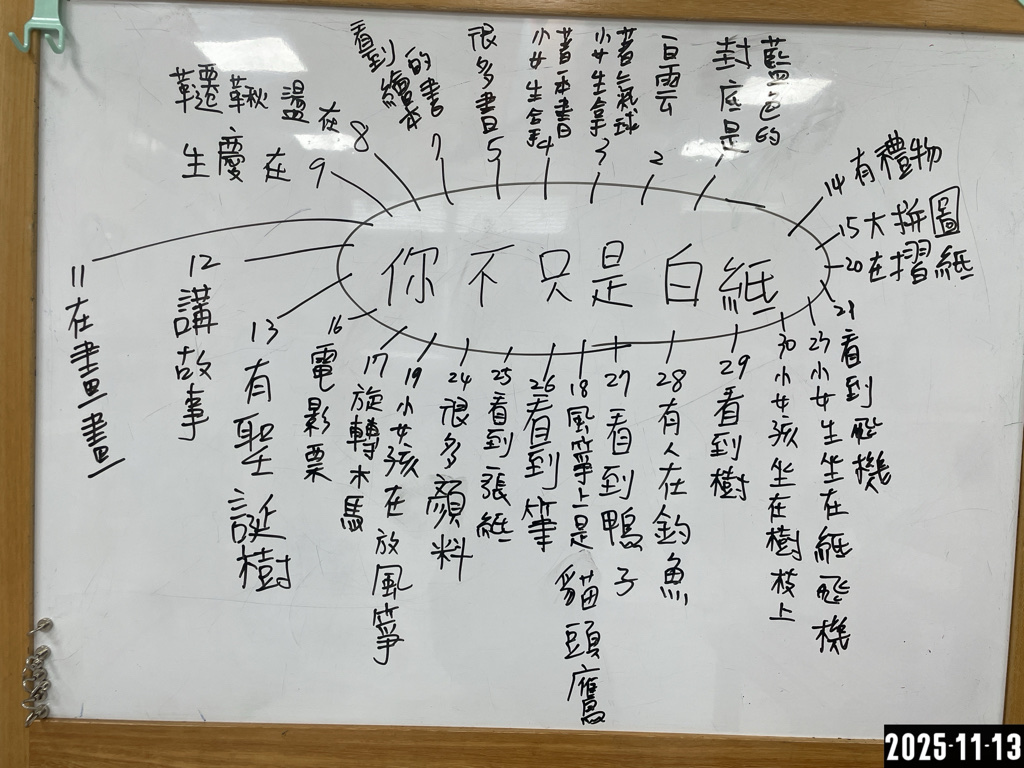 你不只是白紙
1 封底是藍色的
2 白雲
3 小女生拿著氣球
4 小女生拿著一本書
5 很多書
7 看到繪本的書
8 在盪鞦韆
9 在慶生
11 在畫畫
12 講故事
13 有聖誕樹
14 有禮物
15 大拼圖
16 電影票
17 旋轉木馬
18 風箏上是貓頭鷹
19 小女孩在放風箏
20 在摺紙
21 看到飛機
23 小女生坐在紙飛機
24 很多顏料
25 看到張紙
26 看到筆
27 看到鴨子
28 有人在釣魚
29 看到樹
30 小女孩坐在樹枝上
2025-11-13